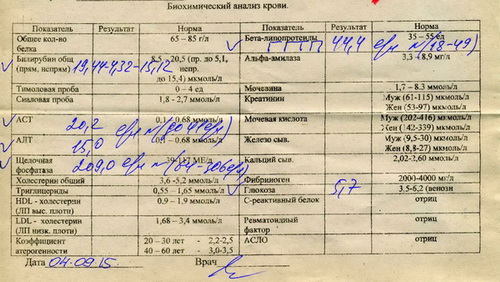 Биохимический анализ крови.
Показатель Результат Норма Показатель Результат Норма
Общее кол-во белка 65 – 85 г/л Бета-липопротеиды ГГТП 44,4 (18-49) 35 – 55 ед
Билирубин общ (прям, непрям) 19,44-4,32-15,12 8,5 - 20,5 (пр. до 5,1, непр. до 15,4) мкмоль/л Альфа-амилаза 3,3 – 8,9 мг/л
Тимоловая проба 0 – 4 ед Мочевина 1,7 – 8.3 ммоль/л
Сиаловая проба 1,8 - 2,7 ммоль/л Креатинин Муж (61-115) мкмоль/л Жен (53-97) мкмоль/л
АСТ 20,2 0,1-0,68 ммоль/л Мочевая кислота Муж (202-416) мкмоль/л Жен (142-339) мкмоль/л
АЛТ 15,0 0,1 – 0,68 ммоль/л Железо сыв. Муж (9,5-30) мкмоль/л Жен (8,8-27) мкмоль/л
Щелочная фосфатаза 209,0 МЕ/л Кальций сыв. 2,02-2,60 ммоль/л
Холестерин общий 3,6-5,2 ммоль/л Фибриноген 2000-4000 мг/л
Триглицериды 0,55 – 1,65 ммоль/л Глюкоза 5,7 3.5-6,2 (венозн
HDL - холестерин (ЛП выс. плоти) 0,9 – 1.9 ммоль/л С-реактивный белок отриц
LDL – холестерин (ЛП низк. плоти) 1,68 – 3,4 ммоль/л Ревматоидный фактор отриц
Коэффициент атерогенности 20 – 30 лет - 2,2-2,5 40 – 60 лет - 3,0-3,5 АСЛО отриц
Дата 04.09.15. Врач